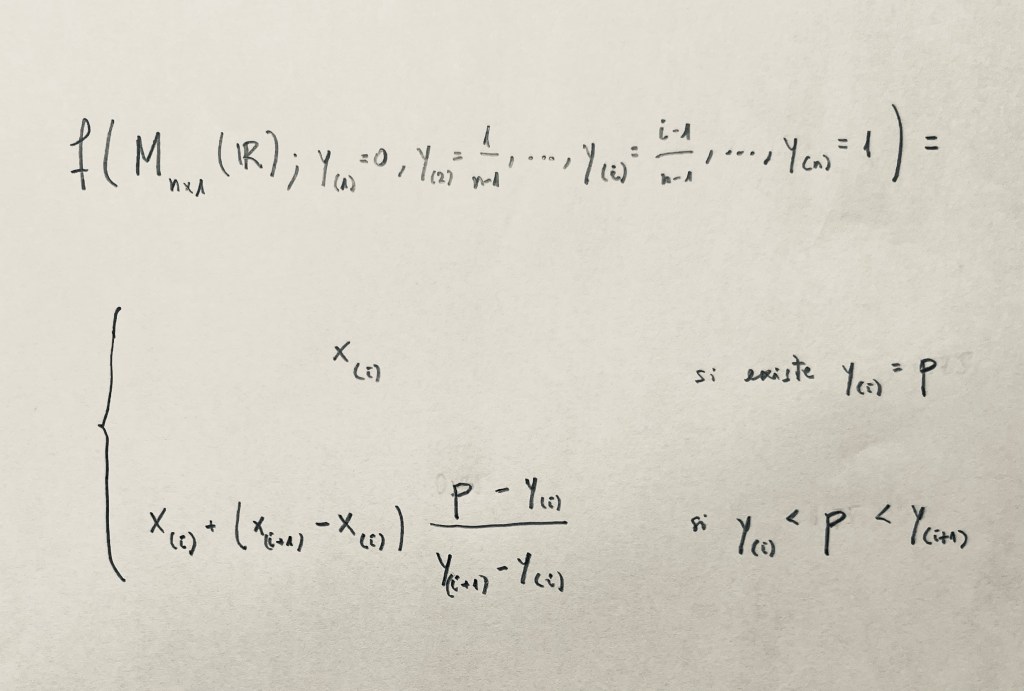 f(M_{n×1}(ℝ); y_{(1)}=0, y_{(2)}=\frac{1}{n-1}, ..., y_{(i)}=\frac{i-1}{n-1}, ..., y_{(n)}=1) =
x_{(i)} si existe y_{(i)} = p
x_{(i)} + (x_{(i+1)} - x_{(i)}) \frac{p - y_{(i)}}{y_{(i+1)} - y_{(i)}} si y_{(i)} < p < y_{(i+1)}